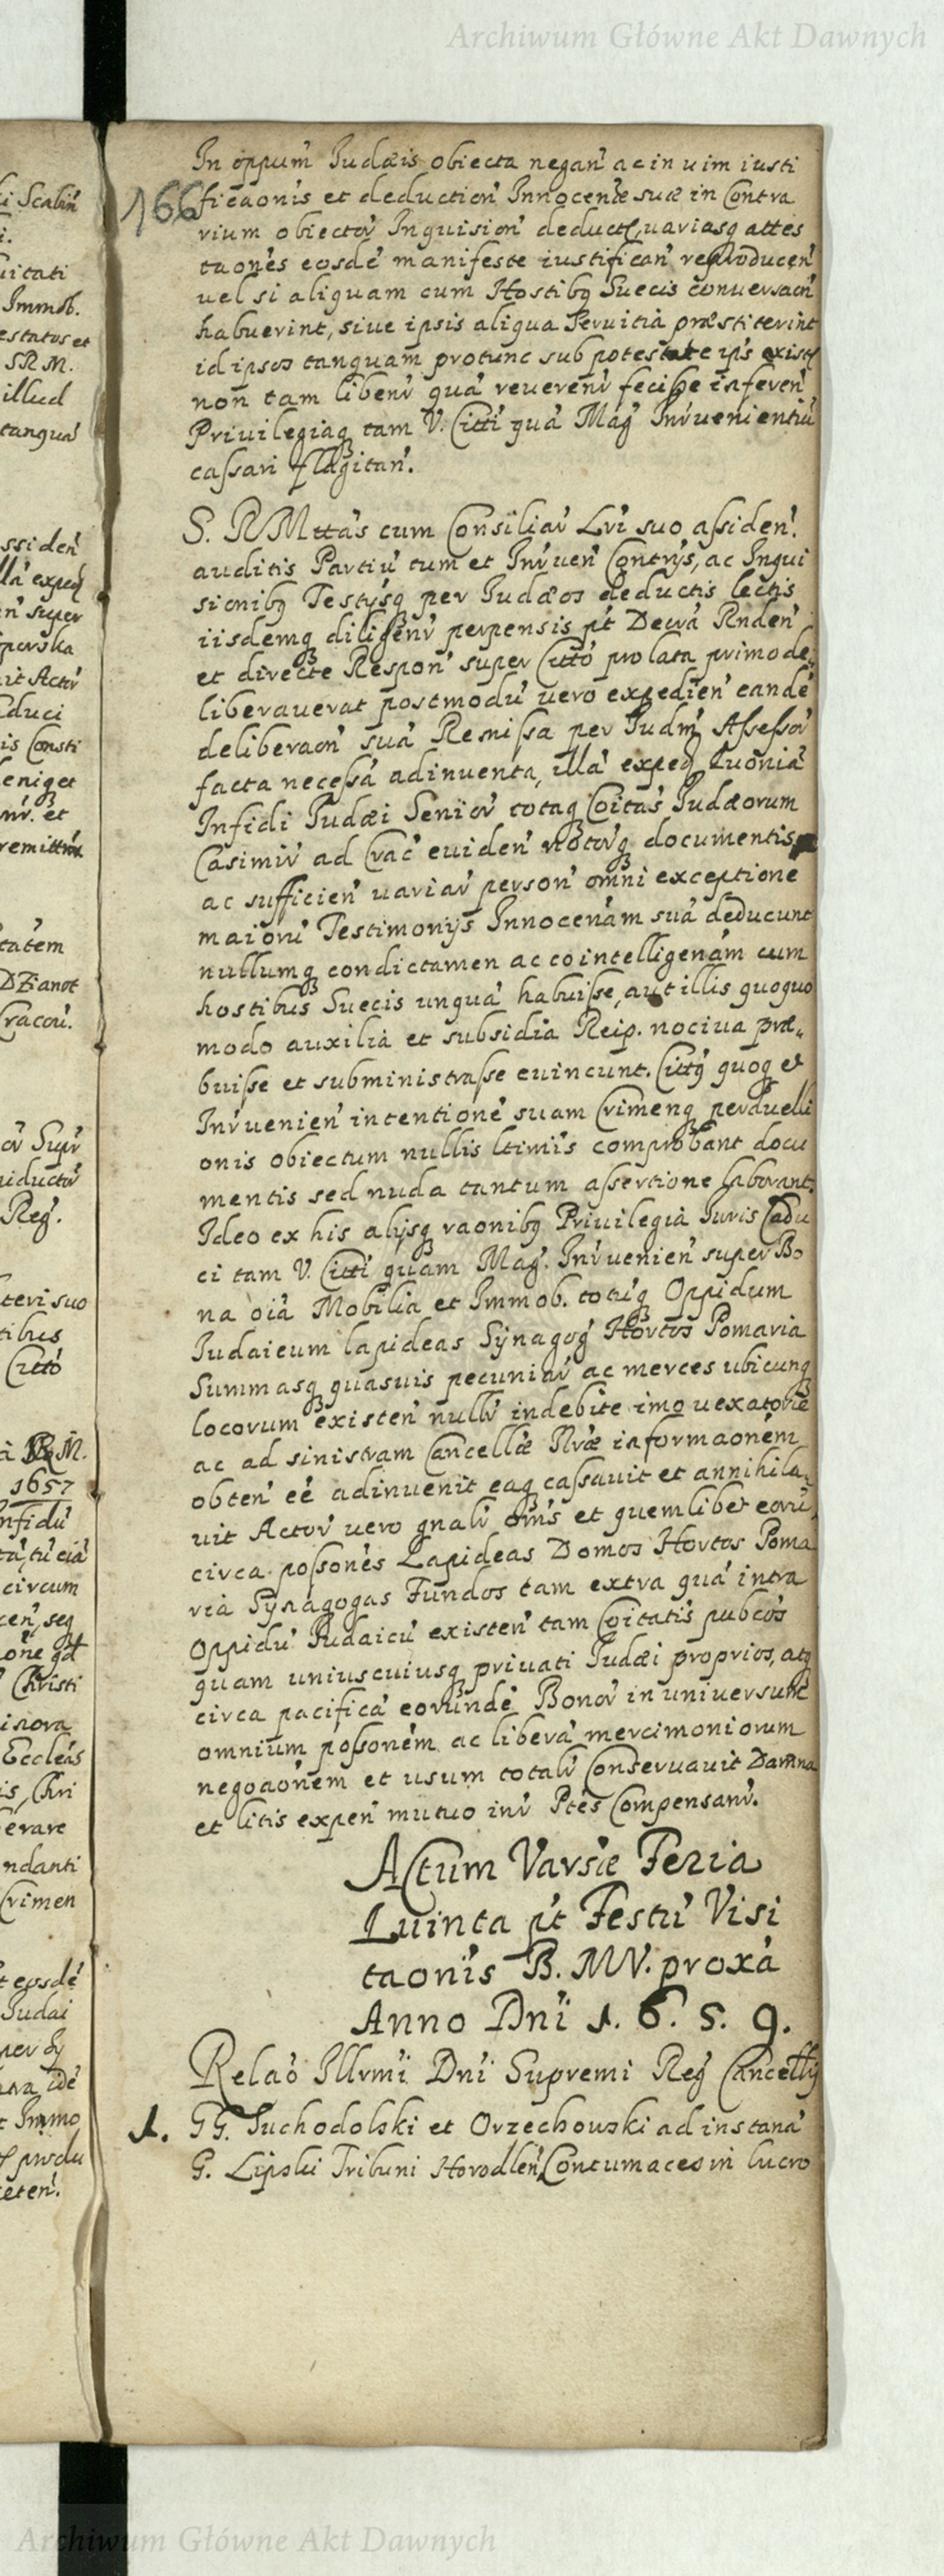 Archiwum Główne Akt Dawnych
166
In oppum̃ Judæis obiecta negan̄ ac in uim iusti
ficaonis et deduction̄ Innocentiæ suæ in Contra
rium obiector̄ Inquision̄ deduct, uariasq̨ attes
taones eosdē manifeste iustifican̄ reproducen̄
uel si aliquam cum Hostibq̨ Suecis conuersaon̄
habuerint, siue ipsis aliqua Seruitia præstiterint
id ipsos tanquam protunc sub potestate ips existen
non tam libenr̄ quā reuerenr̄ fecisse inferen̄
Priuilegiaq̨ tam V. Citti quā Mag̃ Inr̄uenientiū
cassari flagitan̄.
S. R Mttas cum Consiliar̄ Lri suo assiden̄.
auditis Partiū tum et Inr̄uen̄ Contrijs, ac Inqui
sionibq̨ Testijsq̨ per Judæos deductis lectis
iisdemq̨ diligenr̄ perpensis pt Decrā Rnden̄
et directe Respon̄ super Citto prolata primo de,
liberauerat postmodū uero expedien̄ eandē
deliberaon̄ suā Remissa per Judm̃ Assessor̄
facta necessā adinuenta, illā exped Quoniā
Infidi Judæi Senior̄ totaq̨ Coitas Judæorum
Casimir̄ ad Crac̄ euiden̄ notorq̨ documentis
ac sufficien̄ uariar̄ person̄ omni exceptione
maiorū Testimonijs Innocenām suā deducunt
nullumq̨ condictamen ac cointelligenām cum
hostibus Suecis unquā habuisse, aut illis quoquo
modo auxilia et subsidia Reip. nociua præ„
buisse et subministrasse euincunt. Cittq̨ quoq̨ et
Inr̄uenien̄ intentionē suam Crimenq̨ perduelli
onis obiectum nullis ltimis comprobant docu
mentis sed nuda tantum assertione laborant.
Ideo ex his alijsq̨ raonibq̨ Priuilegia Iuris Cadu
ci tam V. Citti quam Mag̃. Inr̄uenien̄ super Bo
na oīa Mobilia et Immob. totiq̨ Oppidum
Judaicum lapideas Synagog̃ Hortos Pomaria
Summasq̨ quasuis pecuniar̄ ac merces ubicunq̨
locorum existen̄ nullr̄ indebite imo uexatorie
ac ad sinistram Cancellæ Nræ informaonem
obten̄ eē adinuenit eaq̨ cassauit et annihila,
uit Actor̄ uero gnalr̄ om̄s et quemlibet eorū
circa possones Lapideas Domos Hortos Poma
ria Synagogas Fundos tam extra quā intra
Oppidū Judaicū existen̄ tam Coitatis pubcos
quam uniuscuiusq̨ priuati Judæi proprios, atq̨
circa pacificā eorundē Bonor̄ in uniuersum
omnium possonem ac liberā mercimoniorum
negoaonem et usum totalr̄ Conseruauit Damna
et litis expen̄ mutuo inr̄ Ptes Compensanr̄.
Actum Varsæ Feria
Quinta pt Festū Visi
taonis B. MV. proxā
Anno Dni 1. 6. 5. 9.
Relaō Illrmi Dni Supremi Reg̃ Cancellij
1. GG. Suchodolski et Orzechowski ad instanā
G. Lipski Tribuni Horodlen̄ Contumaces in lucro
Archiwum Główne Akt Dawnych